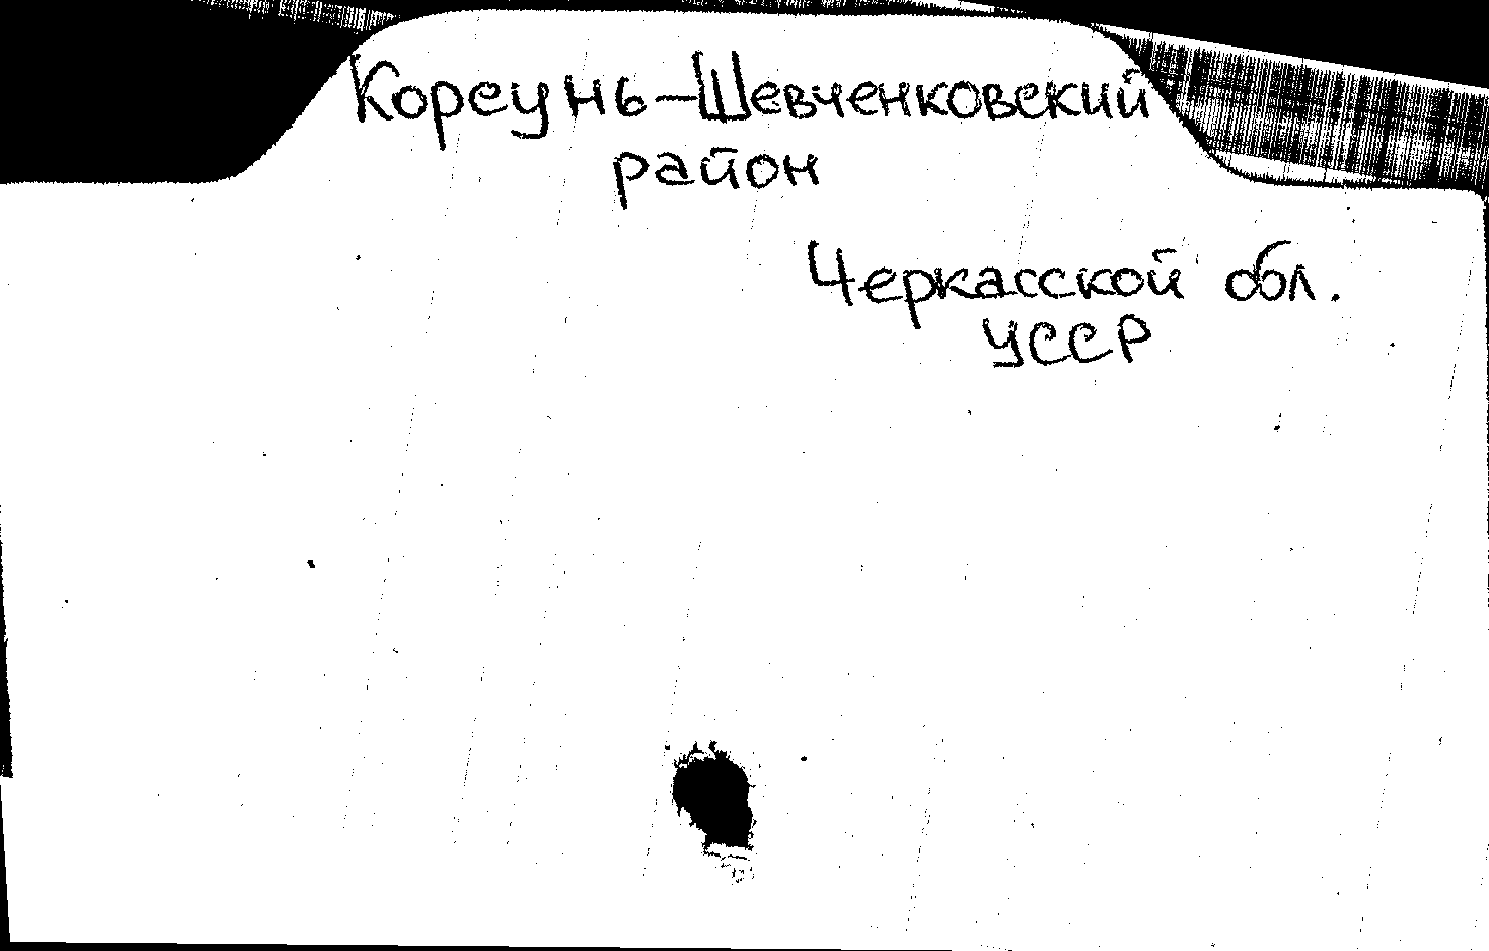 Корсунь-Шевченковский
район
Черкасской обл.
УССР